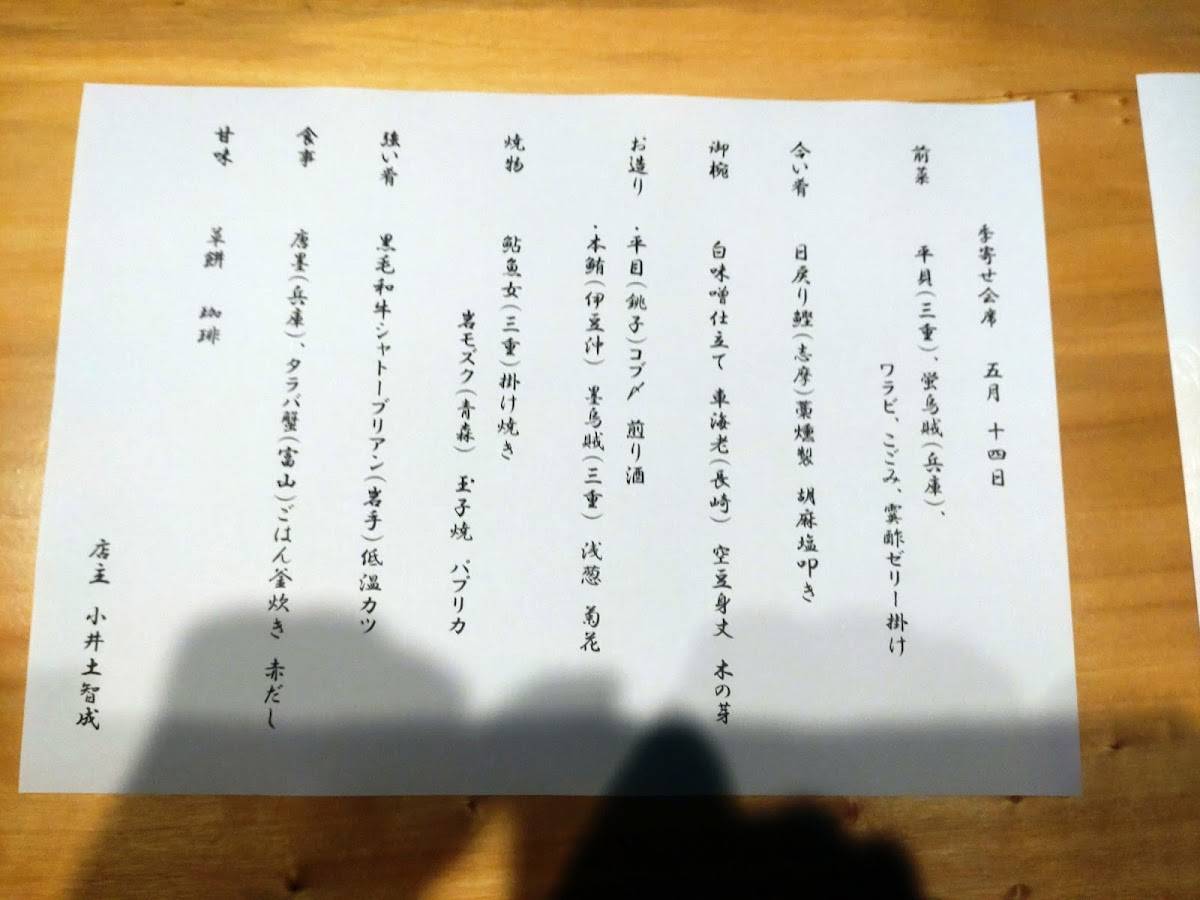 季寄せ会席 五月 十四日
前菜 平貝(三重)、蛍烏賊(兵庫)、
ワラビ、こごみ、雲酢ゼリー掛け
合い肴 日戻り鰹(志摩)藁燻製 胡麻塩叩き
御椀 白味噌仕立て 車海老(長崎) 空豆身丈 木の芽
お造り ・平目(銚子)コブ〆 煎り酒
・本鮪(伊豆沖) 墨烏賊(三重) 浅葱 菊花
焼物 鮎魚女(三重)掛け焼き
岩モズク(青森) 玉子焼 パプリカ
強い肴 黒毛和牛シャトーブリアン(岩手)低温カツ
食事 唐墨(兵庫)、タラバ蟹(富山)ごはん釜炊き 赤だし
甘味 草餅 珈琲
店主 小井土智成